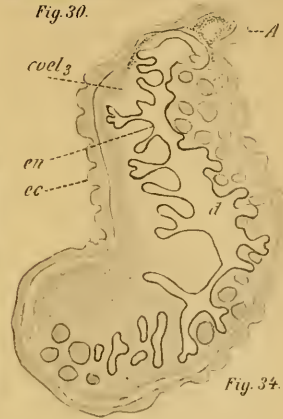 Fig. 30.
A
coel₃
en
ec
d
Fig. 34.